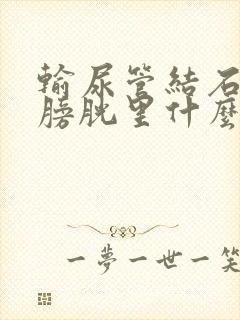 輸尿管結石
膀胱里什麼
一夢一世一笑